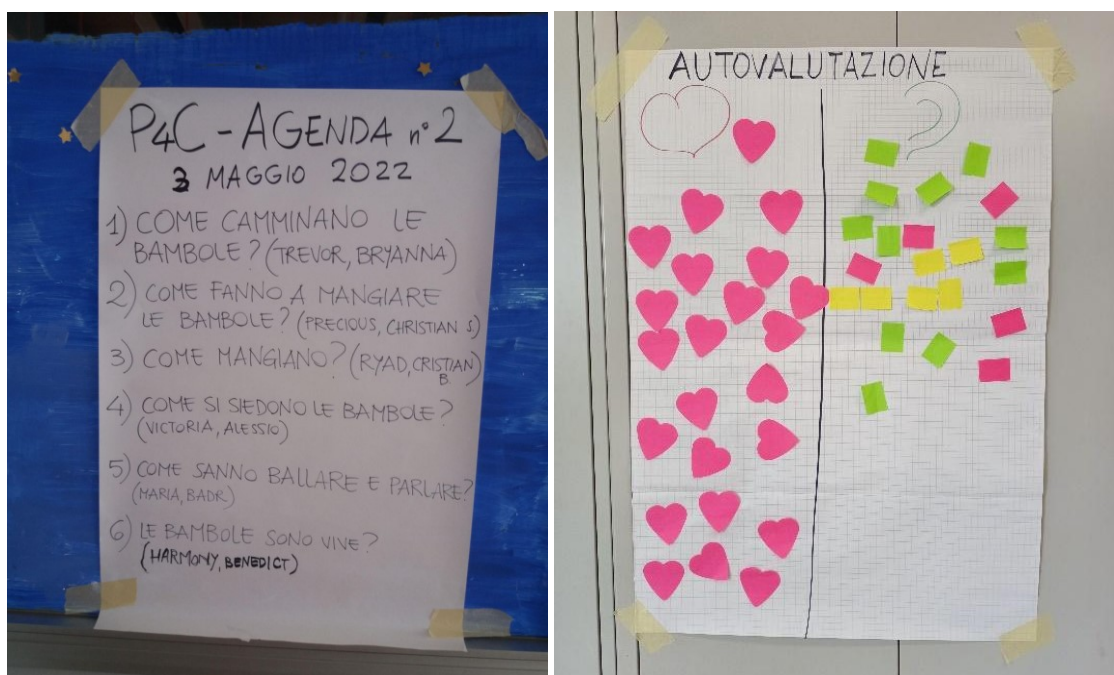 P4C - AGENDA n° 2
3 MAGGIO 2022
1) COME CAMMINANO LE
BAMBOLE? (TREVOR, BRYANNA)
2) COME FANNO A MANGIARE
LE BAMBOLE? (PRECIOUS, CHRISTIAN S.)
3) COME MANGIANO? (RYAD, CRISTIAN
B.
4) COME SI SIEDONO LE BAMBOLE?
(VICTORIA, ALESSIO)
5) COME SANNO BALLARE E PARLARE?
(MARIA, BADR)
6) LE BAMBOLE SONO VIVE?
(HARMONY, BENEDICT)
AUTOVALUTAZIONE
?